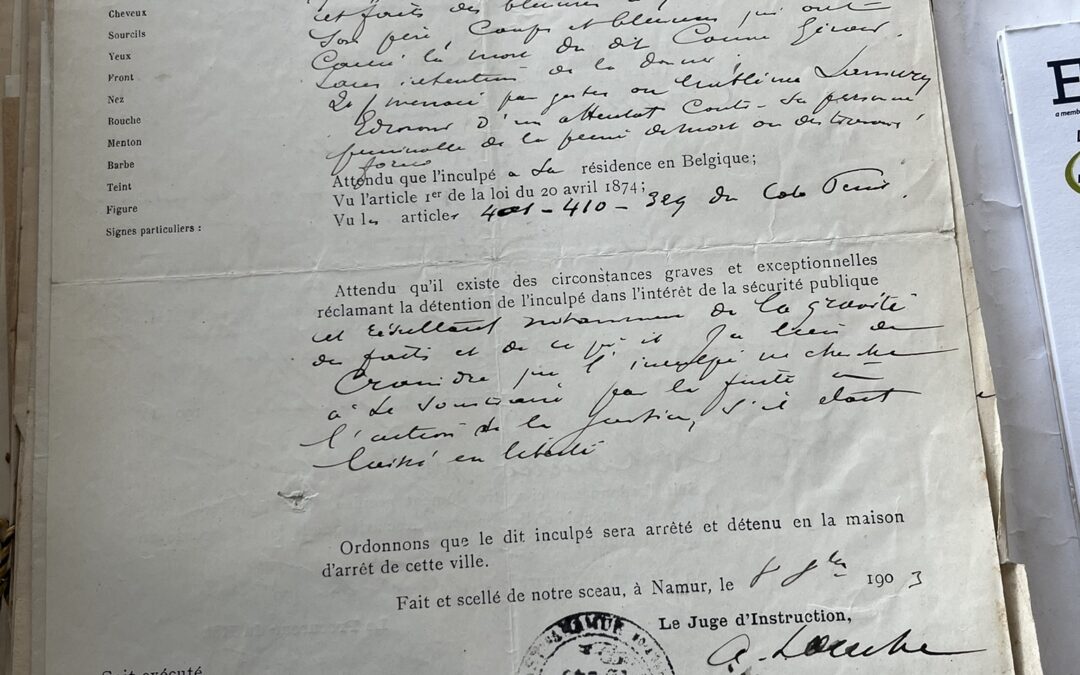 Cheveux
Sourcils
Yeux
Front
Nez
Bouche
Menton
Barbe
Teint
Figure
Signes particuliers :
et faits des blessures
son père, coups et blessures qui ont
causé la mort du dit
sans intention de la donner
menacé par gestes ou
d'un attentat contre sa personne
punissable de la peine de mort ou des travaux
forcés
Attendu que l'inculpé a sa résidence en Belgique;
Vu l'article 1er de la loi du 20 avril 1874;
Vu les articles 401 - 410 - 329 du Code Pénal.
Attendu qu'il existe des circonstances graves et exceptionnelles
réclamant la détention de l'inculpé dans l'intérêt de la sécurité publique
et résultant notamment de la gravité
des faits et de ce qu'il y a lieu de
craindre que l'inculpé ne cherche
à se soustraire par la fuite à
l'action de la justice, s'il était
laissé en liberté
Ordonnons que le dit inculpé sera arrêté et détenu en la maison
d'arrêt de cette ville.
Fait et scellé de notre sceau, à Namur, le 1903
Le Juge d'Instruction,
NAMUR
Soit exécuté
E
a memb